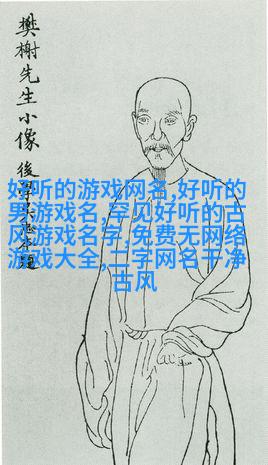 樊榭先生小像
後學
好听的游戏网名,好听的
男游戏名,罕见好听的古
风游戏名字,免费无网络
游戏大全,二字网名干净
古风